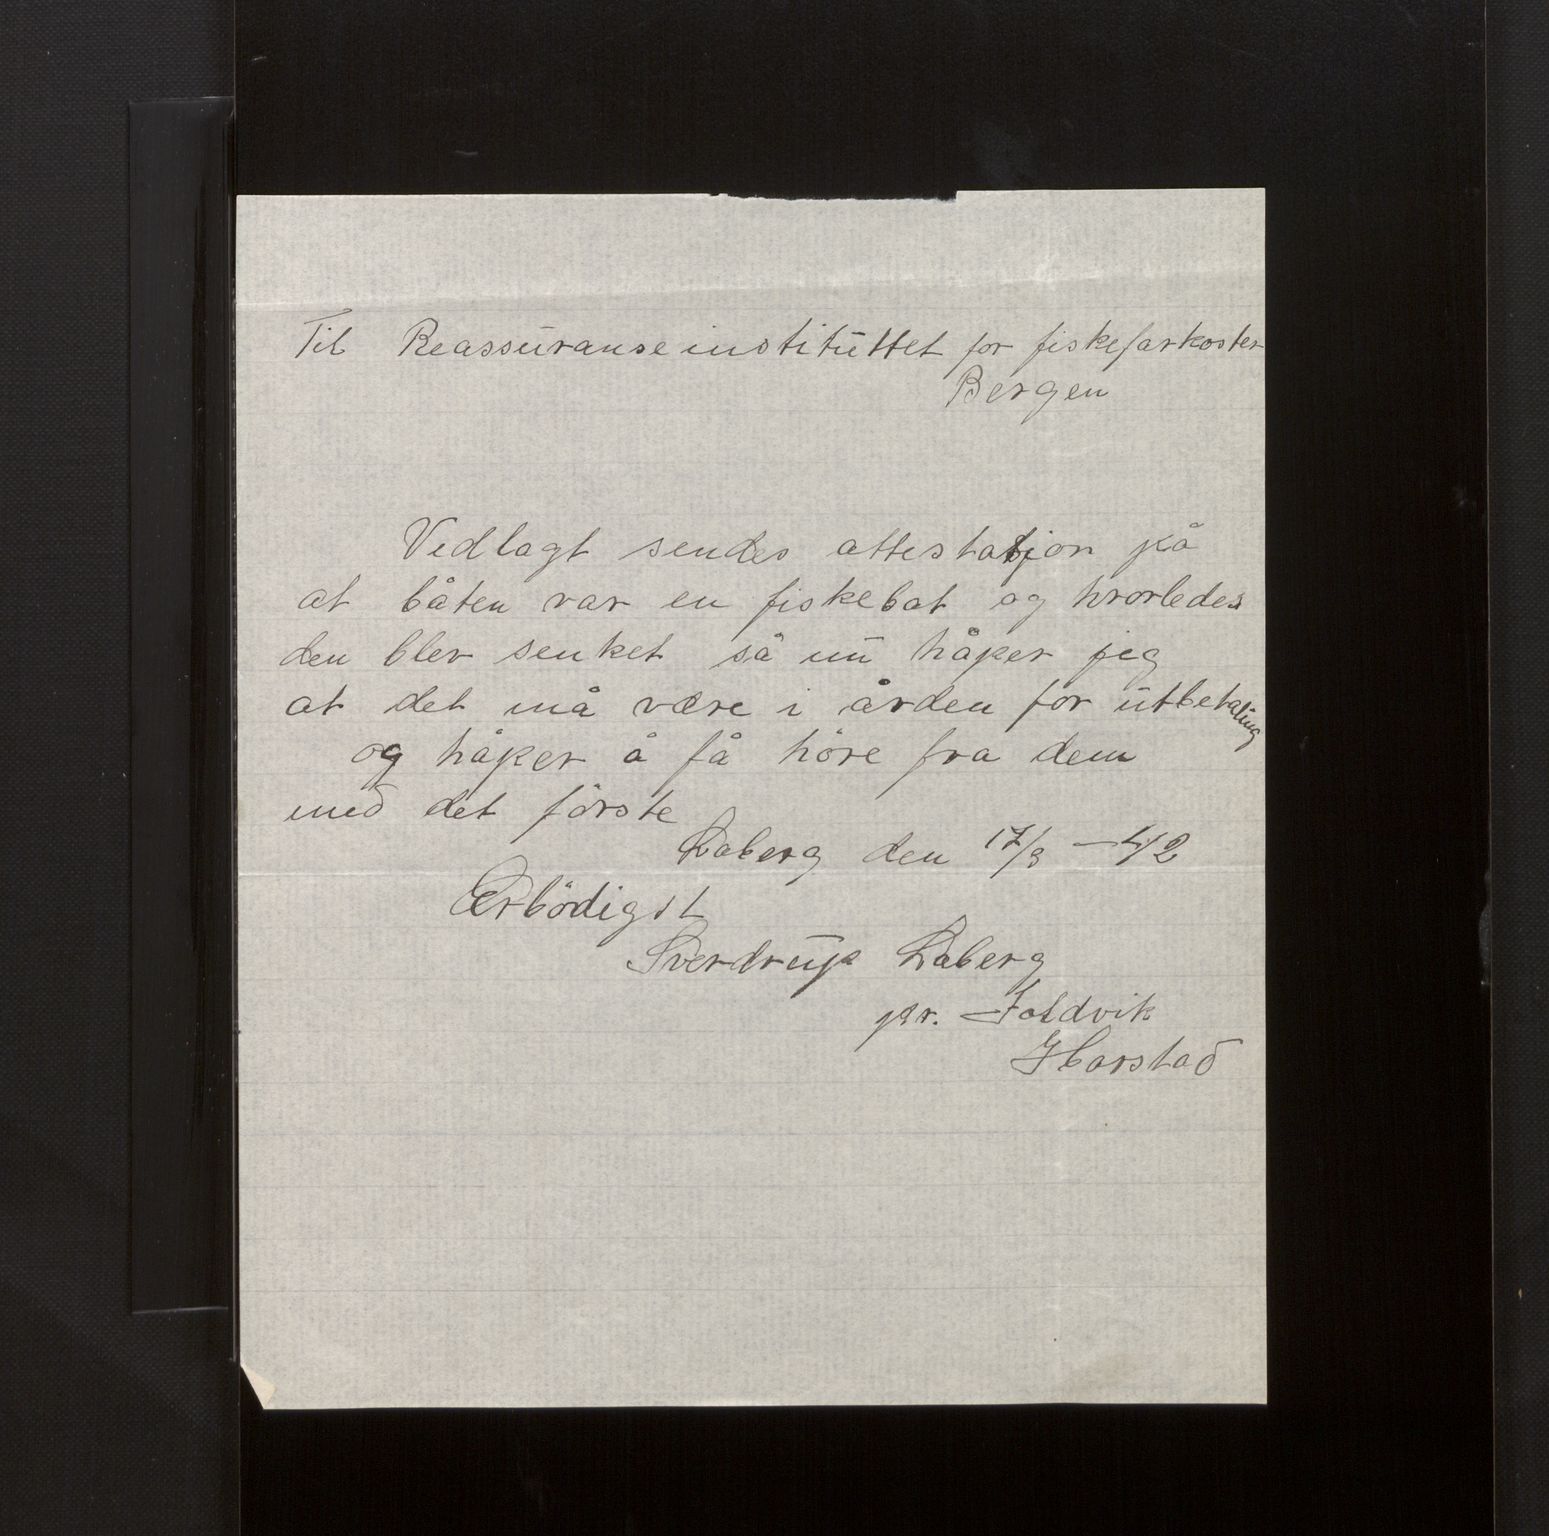 Til Reassuranseinstituttet for fiskefarkoster
Bergen
Vedlagt sendes attestasjon på
at båten var en fiskebat og hvorledes
den blev senket så nu håper jeg
at det må være i ården for utbetaling
og håper å få höre fra dem
med det förste
Laberg den 17/3 – 42
Ærbödigst
Sverdrup Laberg
pr. Foldvik
Harstad